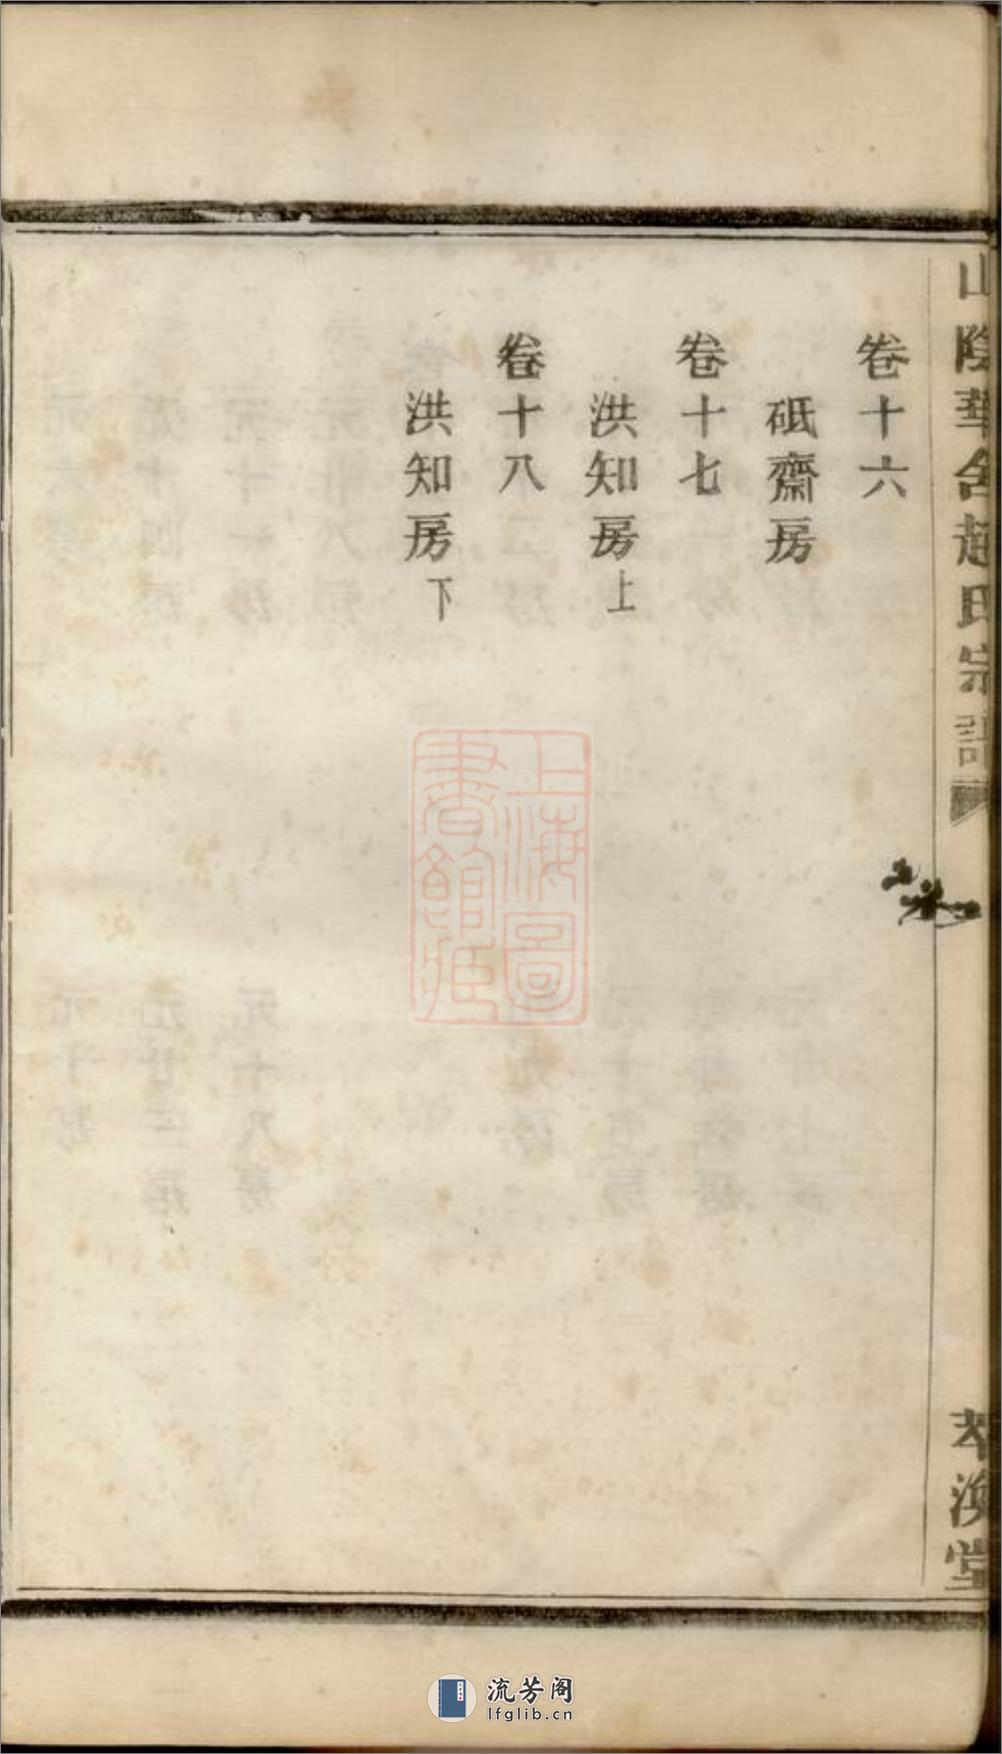 山陰華舍趙氏宗譜
卷十六
砥齋房
卷十七
洪知房上
卷十八
洪知房下
萃渙堂
上海圖
書館藏
流芳阁
lfglib.cn